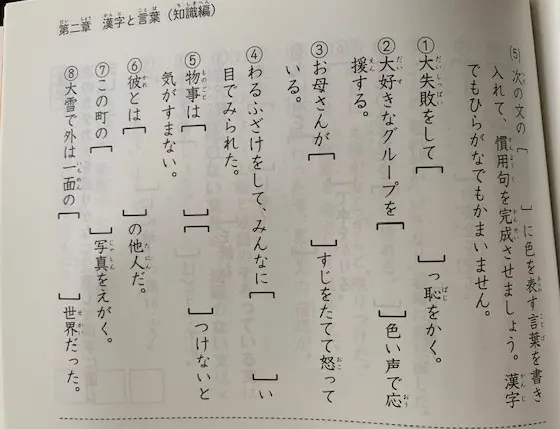 第二章　漢字と言葉（知識編）
(5) 次の文の[　　]に色を表す言葉を書き
入れて、慣用句を完成させましょう。漢字
でもひらがなでもかまいません。
①大失敗をして[　　]っ恥をかく。
②大好きなグループを[　　]色い声で応
援する。
③お母さんが[　　]すじをたてて怒って
いる。
④わるふざけをして、みんなに[　　]い
目でみられた。
⑤物事は[　　][　　]つけないと
気がすまない。
⑥彼とは[　　]の他人だ。
⑦この町の[　　]写真をえがく。
⑧大雪で外は一面の[　　]世界だった。